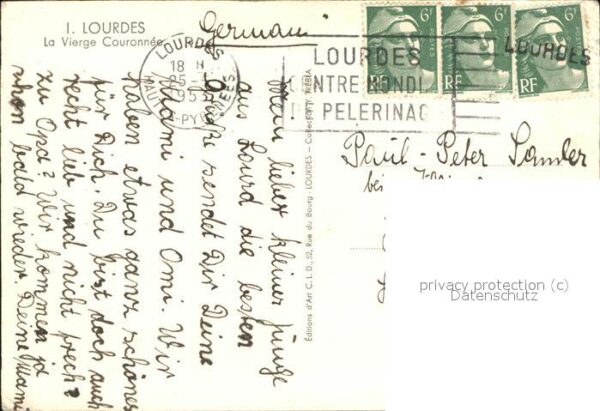 1. LOURDES
La Vierge Couronnée
Germani
LOURDES
18 H
25-
195
HAUTES-PYRENEES
LOURDES
CENTRE MONDIAL
DE PELERINAGE
LOURDES
6F
6F
6F
POSTES
RF
RF
RF
Mein lieber kleiner Junge
aus Lourd die besten
Grüße sendet Dir Deine
Mami und Omi. Wir
haben etwas ganz schönes
für Dich. Du bist doch auch
recht lieb und nicht frech?
zu Opa? Wir kommen ja
schon bald wieder. Deine Mami
Editions d'Art C.L.D., 52, Rue du Bourg - LOURDES - Collection
Paul-Peter Sander
bei
privacy protection (c)
Datenschutz